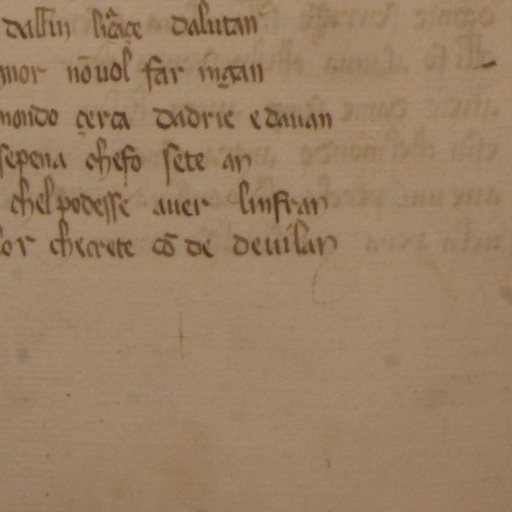 dalutan
mor nō uol far ingan
mondo çerca dadrie e dauan
sepena chefo sete an
chel podesse auer linfran
or cherete cō de deuilan